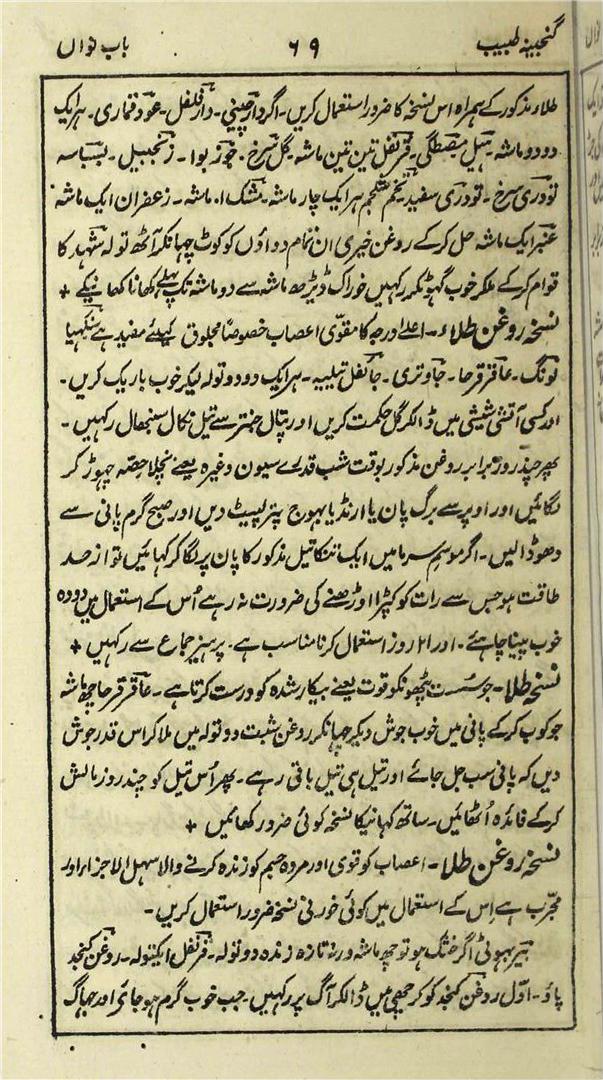 گنجینہ طبیب ۶۹ باب نواں
طلاء مذکور کے ہمراہ اس نسخہ کا ضرور استعمال کریں۔ اگر دارچینی۔ دار فلفل۔ عود قماری۔ ہر ایک
دو دو ماشہ۔ ہیل مصطگی۔ قرنفل تین تین ماشہ۔ گل سرخ۔ جوزبوا۔ زنجبیل۔ بسباسہ
تودری سرخ۔ تودری سفید تخم شلجم ہر ایک چار ماشہ۔ مشک ۱۰ ماشہ۔ زعفران ایک ماشہ
عنبر ایک ماشہ حل کر کے روغن خیری ان تمام دواؤں کو کوٹ چہانکر آٹھ تولہ شہد کا
قوام کر کے ملکر خوب گہوٹکر رکہیں خوراک ڈیڑھ ماشہ سے دو ماشہ تک پہلے کھانا کھانیکے +
نسخہ روغن طلاء۔ اعلے درجہ کا مقوّی اعصاب خصوصاً مجلوق کیلئے مفید ہے سنکہیا
لونگ۔ عاقرقرحا۔ جاوتری۔ جائفل تیلیہ۔ ہر ایک دو دو تولہ لیکر خوب باریک کریں۔
اور کسی آتشی شیشی میں ڈالکر گل حکمت کریں اور پتال جنتر سے تیل نکال سنبھال رکہیں۔
پھر چند روز برابر روغن مذکور بوقت شب قدرے سیون وغیرہ یعنے نچلا حصّہ چہوڑ کر
لگائیں اور اوپر سے برگ پان یا ارنڈ یا بہوج پتر لپیٹ دیں اور صبح گرم پانی سے
دھو ڈالیں۔ اگر موسم سرما میں ایک تنکا تیل مذکور کا پان پر لگا کر کہائیں تو از حد
طاقت ہو جس سے رات کو کپڑا اوڑھنے کی ضرورت نہ رہے اُس کے استعمال میں دودہ
خوب پینا چاہئے۔ اور ۲۱ روز استعمال کرنا مناسب ہے۔ پرہیز جماع سے رکہیں +
نسخہ طلا۔ جو سُست پٹھونکو قوت یعنے بیکار شدہ کو درست کرتا ہے۔ عاقرقرحا چھ ماشہ
جو کوب کر کے پانی میں خوب جوش دیکر چہانکر روغن شبت دو تولہ میں ملا کر اس قدر جوش
دیں کہ پانی سب جل جائے اور تیل ہی تیل باقی رہے۔ پھر اُس تیل کو چند روز مالش
کر کے فائدہ اُٹھائیں۔ ساتھ کہانیکا نسخہ کوئی ضرور کھائیں +
نسخہ روغن طلا۔ اعصاب کو قوی اور مردہ جسم کو زندہ کرنے والا سہل الاجزا اور
مجرّب ہے اِس کے استعمال میں کوئی خوردنی نسخہ ضرور استعمال کریں۔
بیر بہوٹی اگر خشک ہو تو چھ ماشہ ورنہ تازہ زندہ دو تولہ۔ قرنفل ایکتولہ۔ روغن کنجد
پاؤ۔ اوّل روغن کنجد کو کرچھی میں ڈالکر آگ پر رکہیں۔ جب خوب گرم ہو جائے اور جہاگ